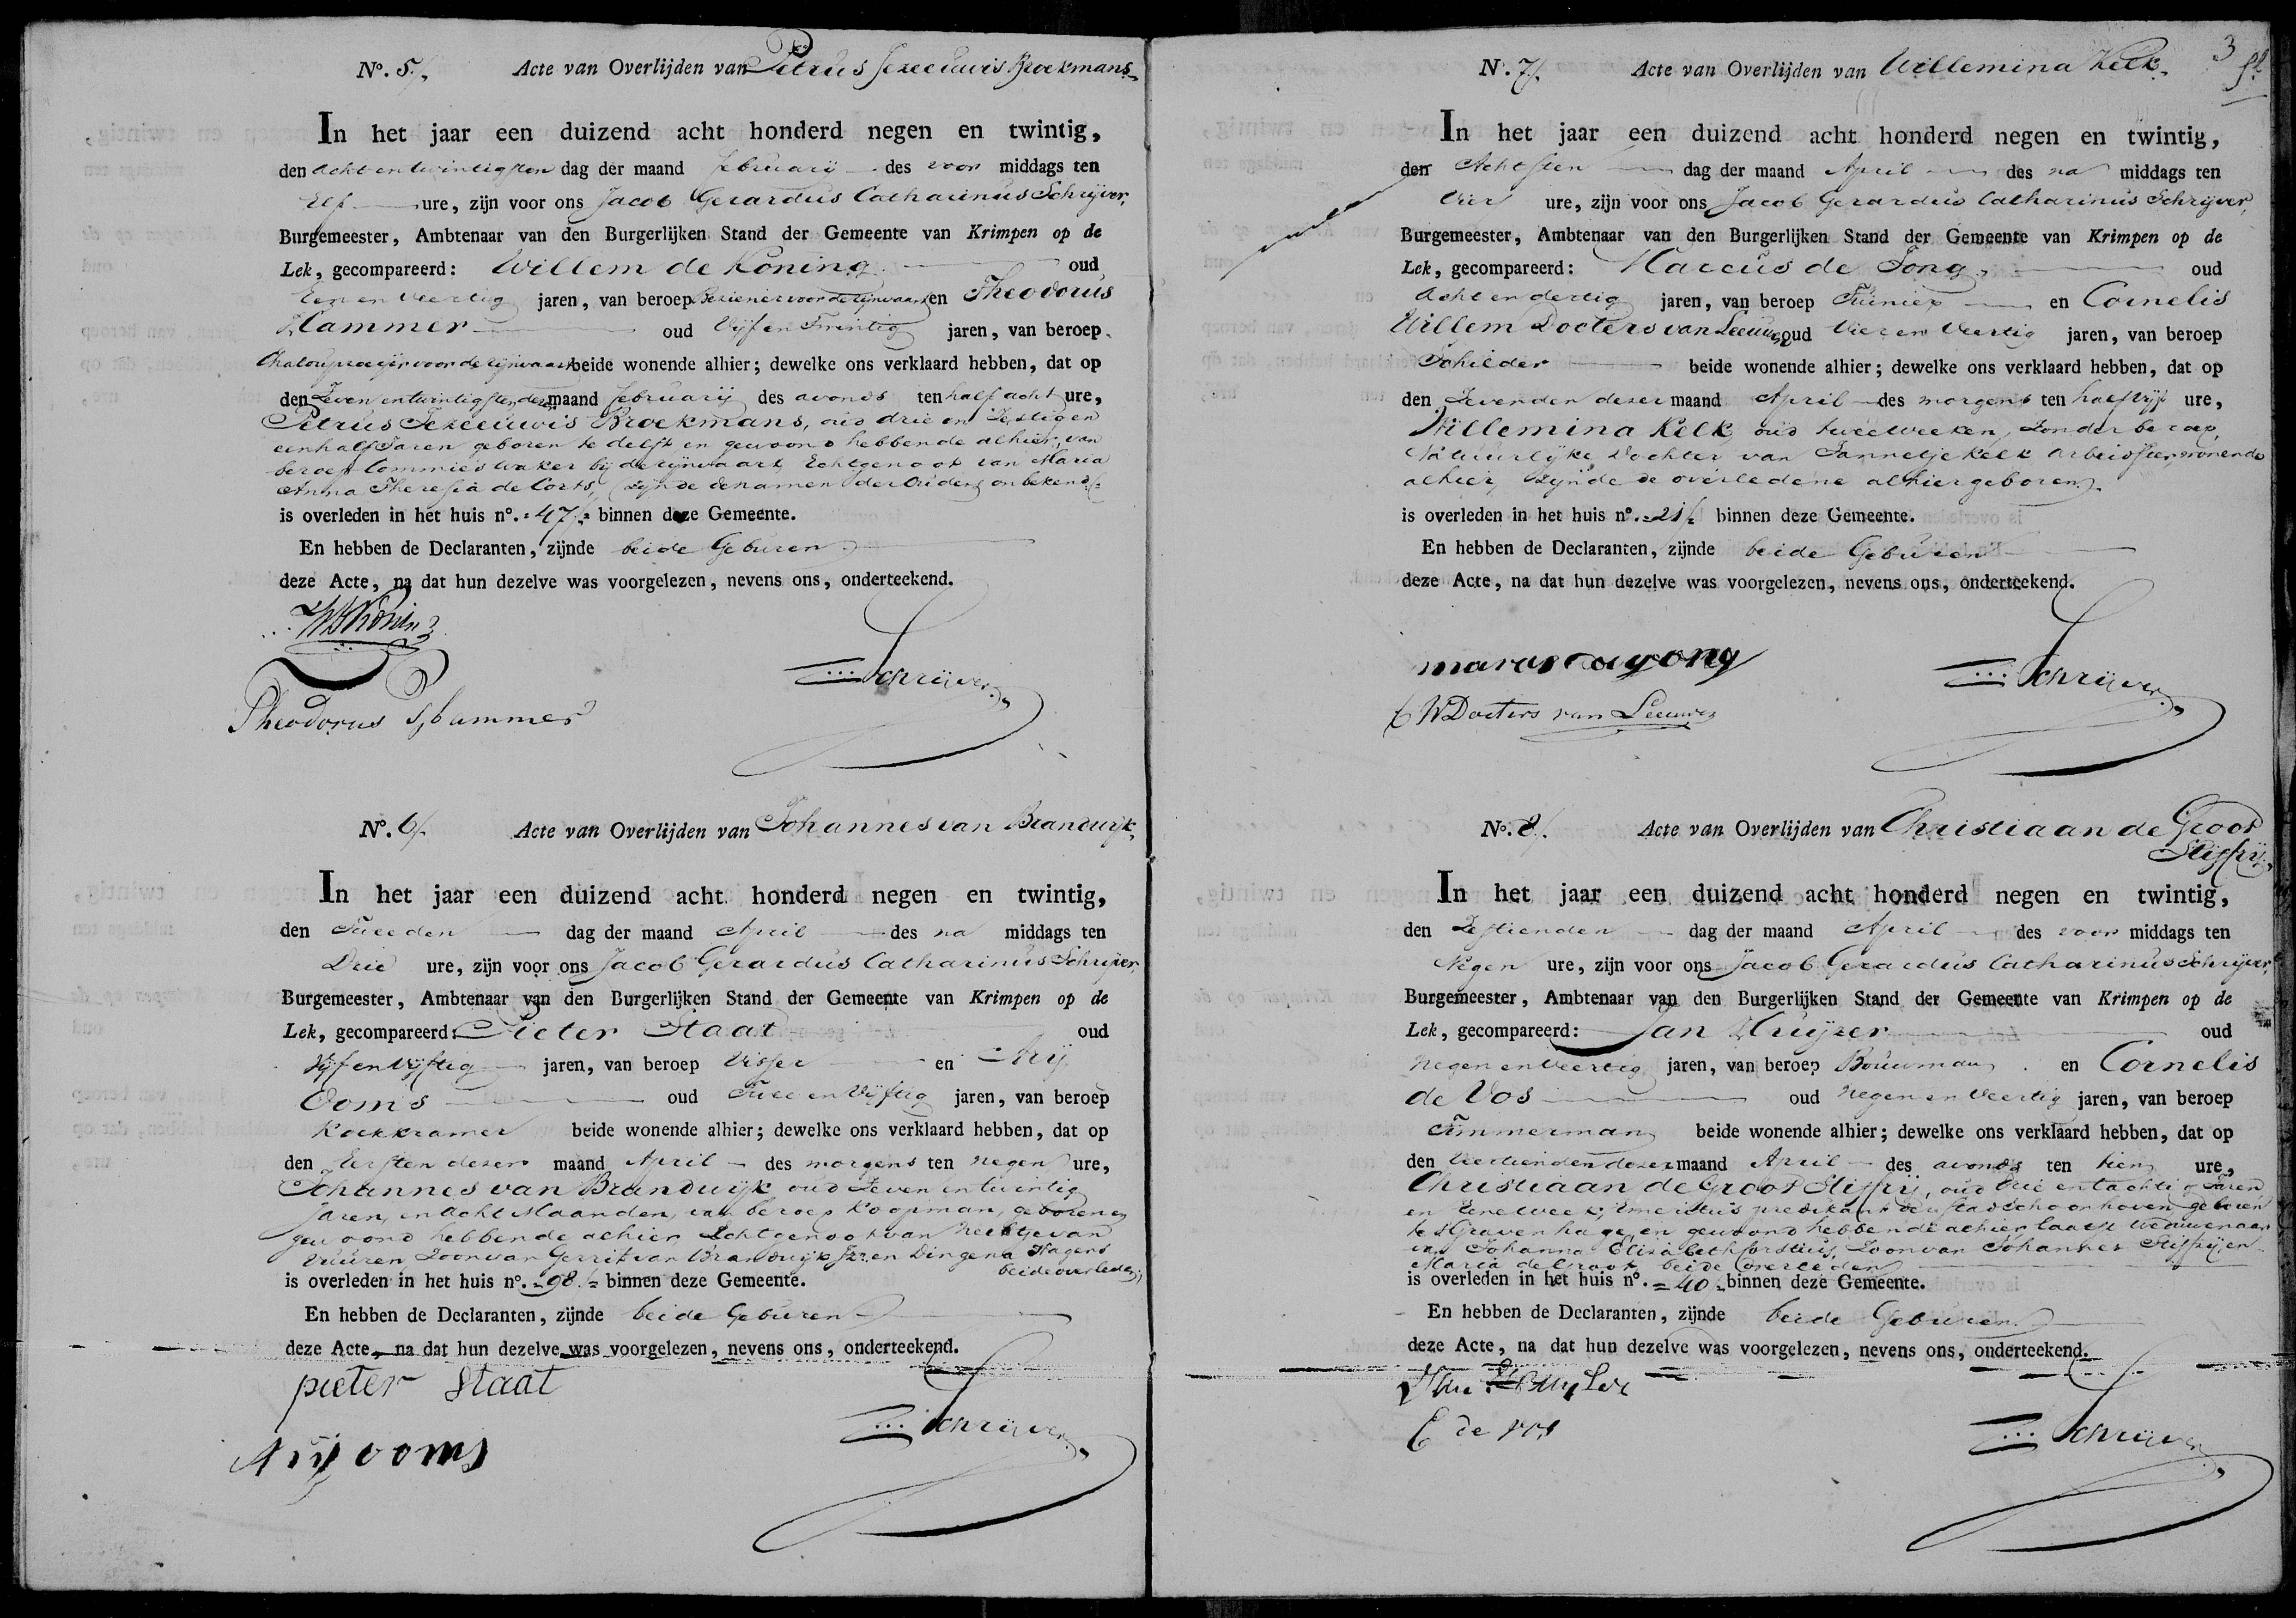 No. 5. Acte van Overlijden van Petrus Jezeeuwis Broekmans
In het jaar een duizend acht honderd negen en twintig,
den achtentwintigsten dag der maand februarij des voor middags ten
Elf ure, zijn voor ons Jacob Gerardus Catharinus Schrijver,
Burgemeester, Ambtenaar van den Burgerlijken Stand der Gemeente van Krimpen op de
Lek, gecompareerd: Willem de Koning oud
Een en veertig jaren, van beroep voor de rijnvaart en Theodorus
Hammer oud Vijf en Twintig jaren, van beroep
voor de rijnvaart beide wonende alhier; dewelke ons verklaard hebben, dat op
den Zeven en twintigsten dezer maand februarij des avonds ten half acht ure,
Petrus Jezeeuwis Broekmans, oud drie en Zestig en
een half Jaren geboren te delft en gewoond hebbende alhier, van
beroep Commies waker bij de rijnvaart, Echtgenoot van Maria
Anna Theresia de Corts, zijnde de namen der Ouders onbekend
is overleden in het huis no. 47 binnen deze Gemeente.
En hebben de Declaranten, zijnde beide Geburen
deze Acte, na dat hun dezelve was voorgelezen, nevens ons, onderteekend.
WD Koning
Schrijver
Theodorus Hammer
No. 6. Acte van Overlijden van Johannes van Brandwijk
In het jaar een duizend acht honderd negen en twintig,
den Tweeden dag der maand April des na middags ten
Drie ure, zijn voor ons Jacob Gerardus Catharinus Schrijver
Burgemeester, Ambtenaar van den Burgerlijken Stand der Gemeente van Krimpen op de
Lek, gecompareerd: Pieter Staat oud
Vijf en Vijftig jaren, van beroep Visser en Arij
Ooms oud Twee en Vijftig jaren, van beroep
Koekkramer beide wonende alhier; dewelke ons verklaard hebben, dat op
den Eersten dezer maand April des morgens ten negen ure,
Johannes van Brandwijk oud Zeven en twintig
Jaren, en Acht Maanden, van beroep Koopman, geboren en
gewoond hebbende alhier, Echtgenoot van Neeltje van
Vuuren, Zoon van Gerrit van Brandwijk Jzn en Dingena Hagens
beide overleden,
is overleden in het huis no. 98 binnen deze Gemeente.
En hebben de Declaranten, zijnde beide Geburen
deze Acte, na dat hun dezelve was voorgelezen, nevens ons, onderteekend.
pieter Staat
Schrijver
Arij ooms
3
No. 7. Acte van Overlijden van Willemina Kelk
In het jaar een duizend acht honderd negen en twintig,
den Achtsten dag der maand April des na middags ten
Vier ure, zijn voor ons Jacob Gerardus Catharinus Schrijver,
Burgemeester, Ambtenaar van den Burgerlijken Stand der Gemeente van Krimpen op de
Lek, gecompareerd: Marcus de Jong oud
Acht en dertig jaren, van beroep Tuinier en Cornelis
Willem Docters van Leeuwen oud Vier en Veertig jaren, van beroep
Schilder beide wonende alhier; dewelke ons verklaard hebben, dat op
den Zevenden dezer maand April des morgens ten half vijf ure,
Willemina Kelk oud twee weeken, zonder beroep,
Natuurlijke dochter van Jannetje Kelk Arbeidster, wonende
alhier, zijnde de overledene alhier geboren
is overleden in het huis no. 21 binnen deze Gemeente.
En hebben de Declaranten, zijnde beide Geburen
deze Acte, na dat hun dezelve was voorgelezen, nevens ons, onderteekend.
marcus de jong
Schrijver
C W Docters van Leeuwen
No. 8. Acte van Overlijden van Christiaan de Groot
Stiffrij
In het jaar een duizend acht honderd negen en twintig,
den Zestienden dag der maand April des voor middags ten
Negen ure, zijn voor ons Jacob Gerardus Catharinus Schrijver
Burgemeester, Ambtenaar van den Burgerlijken Stand der Gemeente van Krimpen op de
Lek, gecompareerd: Jan Kruijzer oud
Negen en Veertig jaren, van beroep Bouwman en Cornelis
de Vos oud Negen en Veertig jaren, van beroep
Timmerman beide wonende alhier; dewelke ons verklaard hebben, dat op
den Veertienden dezer maand April des avonds ten tien ure,
Christiaan de Groot Stiffrij, oud drie en tachtig Jaren
en Eene week, Emeritus predikant der stad Schoonhoven geboren
te s Gravenhage, en gewoond hebbende alhier, laatst weduwenaar
van Johanna Elisabeth Vorstius, Zoon van Johannes Stiffrij, en
Maria de Groot, beide Overleden
is overleden in het huis no. 40 binnen deze Gemeente.
En hebben de Declaranten, zijnde beide Geburen
deze Acte, na dat hun dezelve was voorgelezen, nevens ons, onderteekend.
C de vos
Schrijver